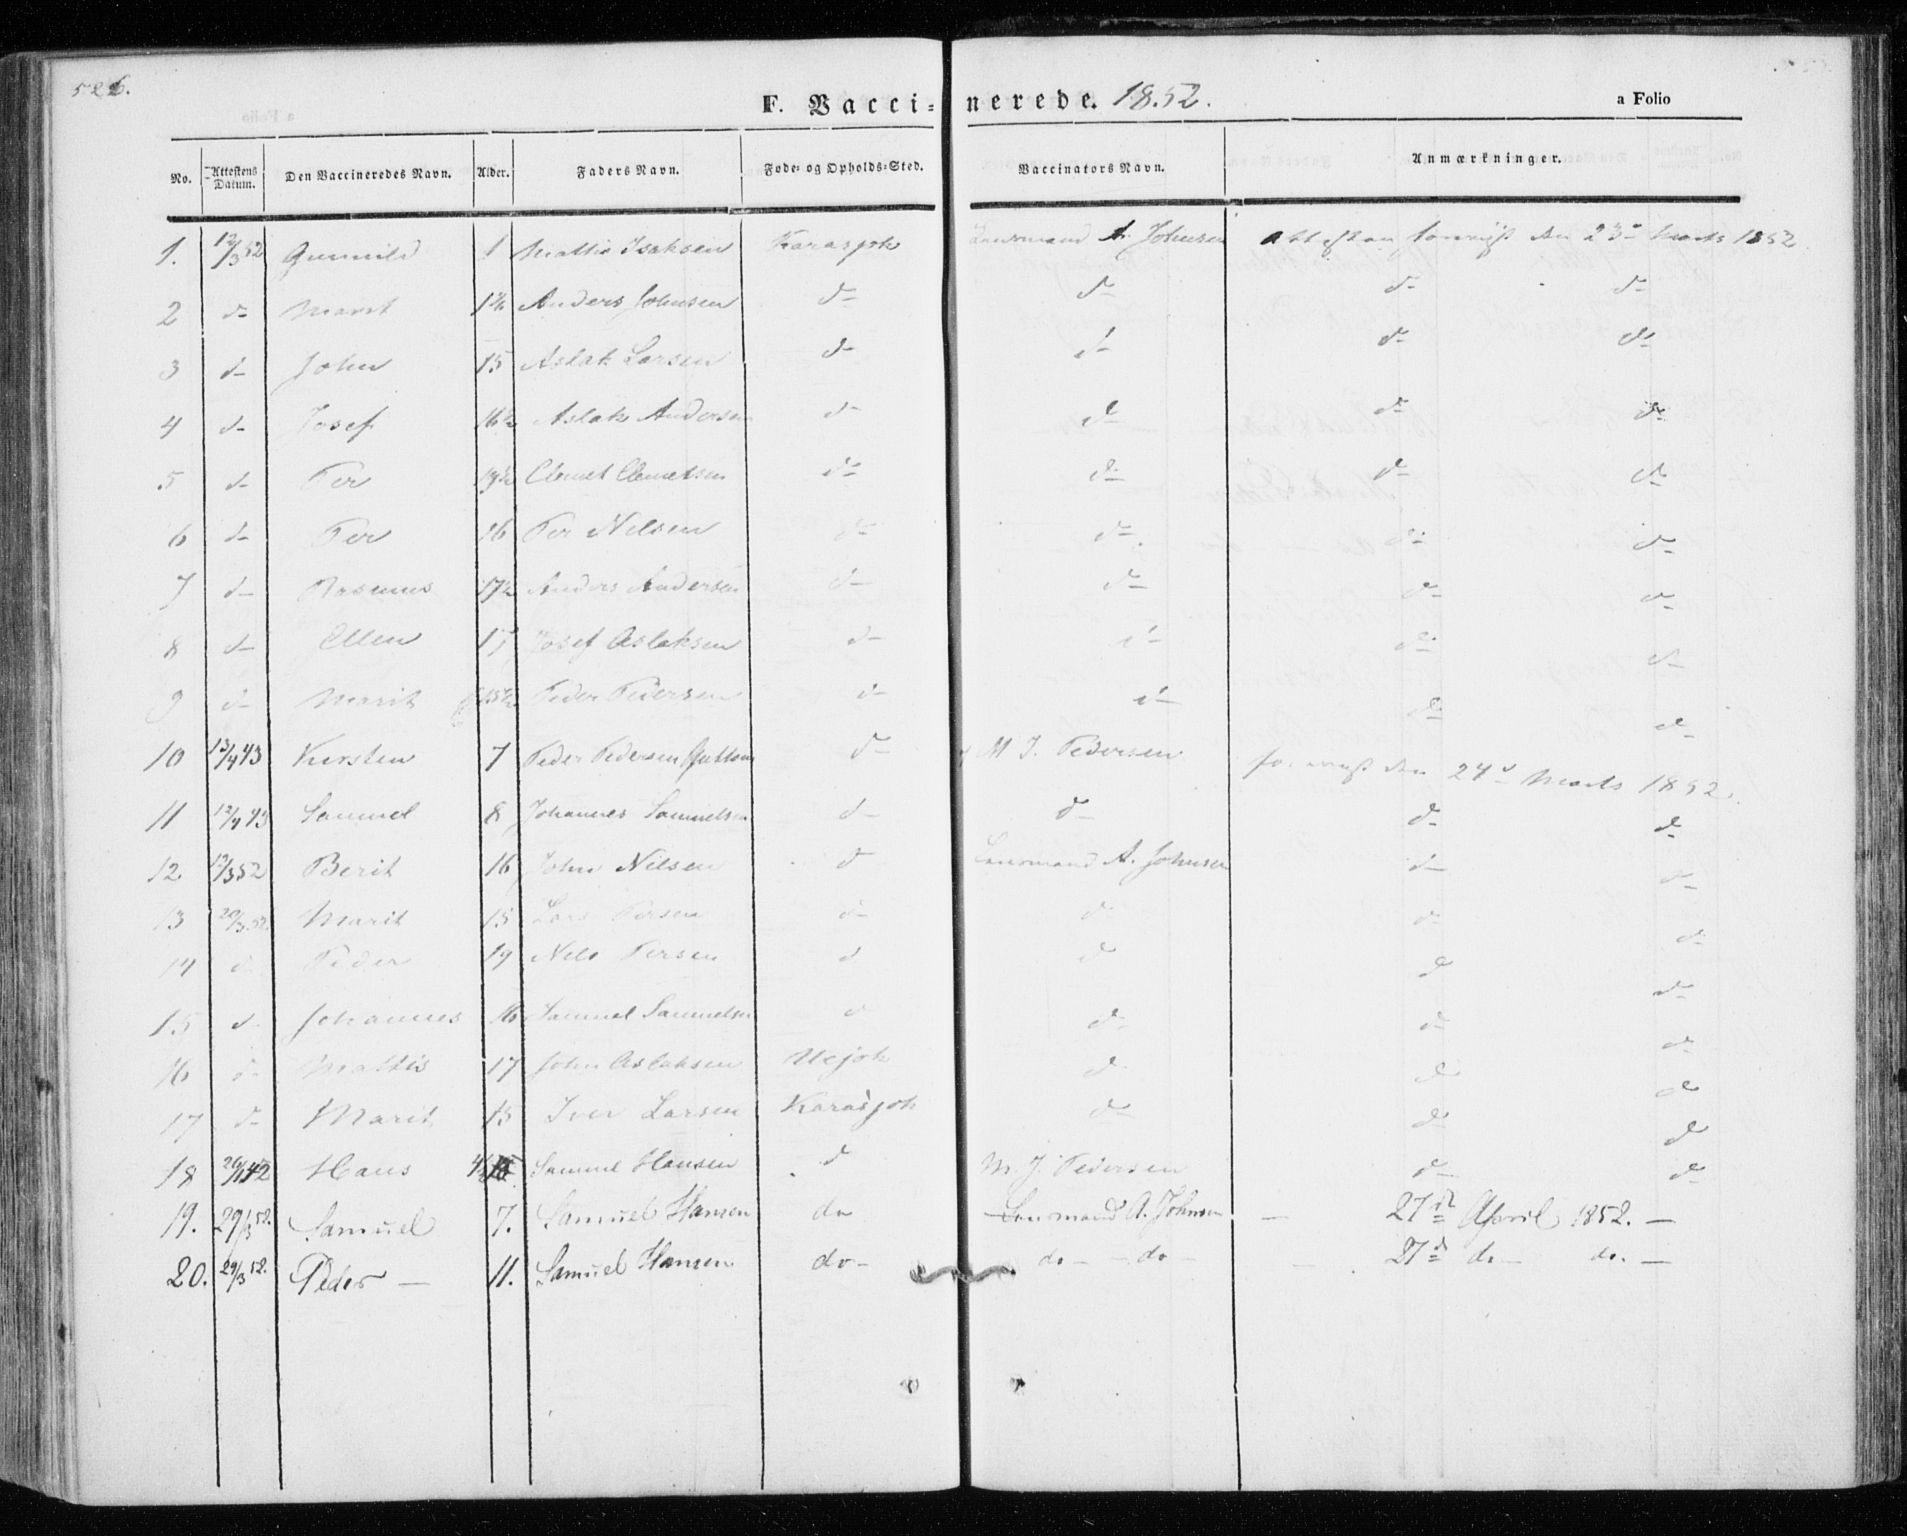 526.
F. Vaccinerede. 1852.
a Folio
No. Attestens Datum. Den Vaccineredes Navn. Alder. Faders Navn. Føde- og Opholds-Sted. Vaccinators Navn. Anmærkninger.
1. 12/3 52 Gunnild 1 Mathis Isaksen Karasjok Lensmand A. Johnsen Attesten foreviist den 23d Marts 1852.
2 d- Marit Anders Johnsen d- d- d- d-
3 d- John 15 Aslak Larsen d- d- d- d-
4 d- Josef 16½ Aslak Andersen d- d- d- d-
5 d- Per 19½ Clemet Clemetsen d- d- d- d-
6 d- Per 16 Per Nilsen d- d- d- d-
7 d- Rasmus 17½ Anders Andersen d- d- d- d-
8 d- Ellen 17 Josef Aslaksen d- d- d- d-
9 d- Marit 15½ Peder Pedersen d- d- d- d-
10 13/4 43 Kirsten 7 Peder Pedersen d- M J. Pedersen foreviist den 24d Marts 1852.
11 12/4 43 Samuel 8 Johannes Samuelsen d- d- d- d-
12 12/3 52 Berit 16 John Nilsen d Lensmand A. Johnsen d- d-
13 20/3 52. Marit 15 Lars Persen d- d d- d-
14 d- Peder 19 Nils Persen d d d d-
15 d- Johannes 16 Samuel Samuelsen d d- d- d-
16 d- Mathis 17 John Aslaksen Utsjok d d d
17 d- Marit 15 Iver Larsen Karasjok d- d d
18 Hans Samuel Hansen d M. J. Pedersen d- d-
19. 29/3 52. Samuel 7. Samuel Hansen do Lensmand A. Johnsen — 27d April 1852. —
20. 29/3 52. Peder — 11. Samuel Hansen do- do — do — — 27d do — do. —